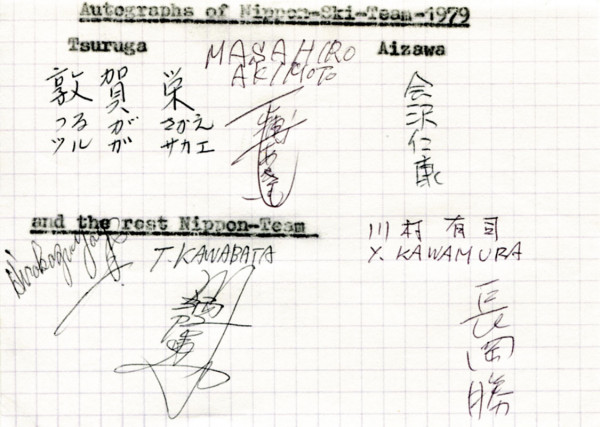 Autographs of Nippon-Ski-Team-1979
Tsuruga
MASAHIRO
AKIMOTO
Aizawa
敦賀 栄
つるが さかえ
ツルガ サカエ
会沢仁
and the rest Nippon-Team
T. KAWABATA
川村有司
Y. KAWAMURA
長岡勝